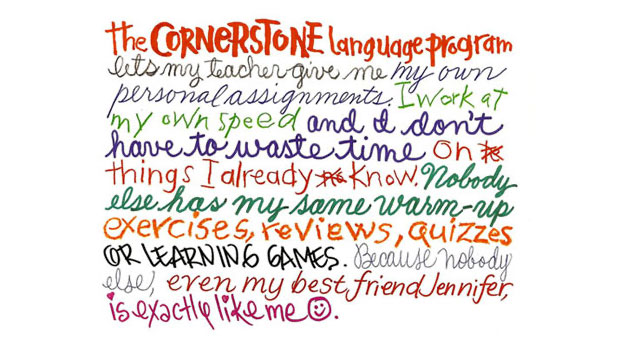 the CORNERSTONE language program
lets my teacher give me my own
personal assignments. I work at
my own speed and I don't
have to waste time On
things I already Know. Nobody
else has my same warm-up
exercises, reviews, quizzes
OR LEARNING GAMES. Because nobody
else, even my best friend Jennifer,
is exactly like me ☺.